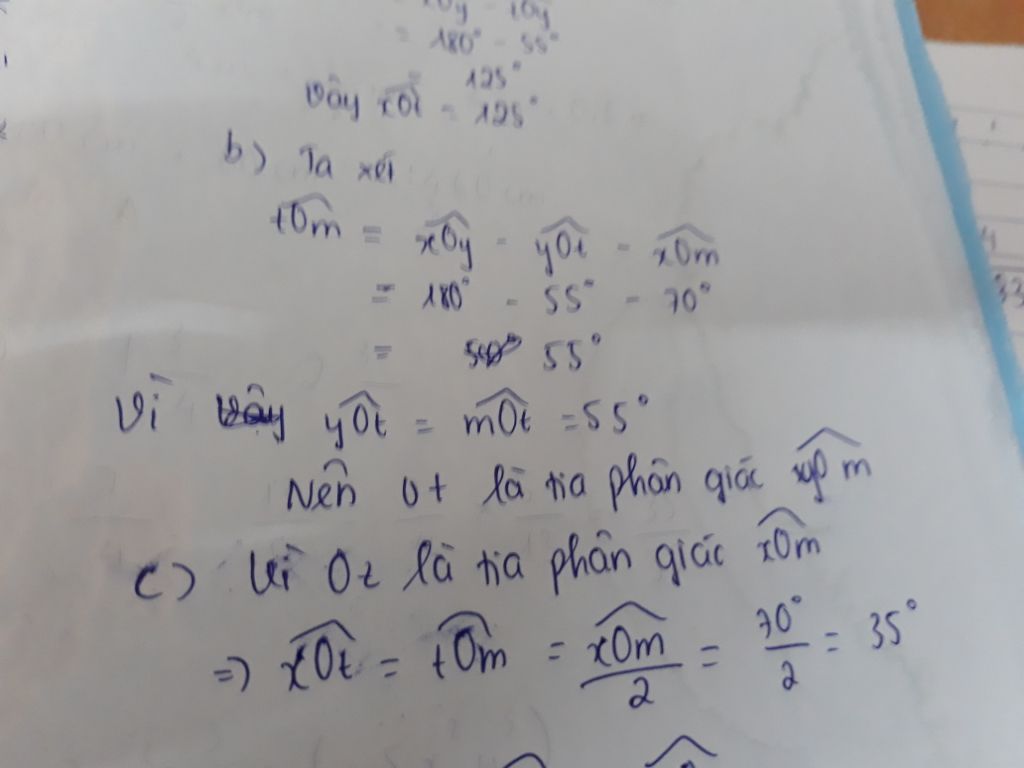 = xOy - tOy
= 180° - 55°
125°
Vậy xOt = 125°
b) Ta xét
tOm = xOy - yOt - xOm
= 180° - 55° - 70°
= 55°
Vì yOt = mOt = 55°
Nên Ot là tia phân giác yOm
c) Vì Oz là tia phân giác xOm
=> xOt = tOm = xOm/2 = 70°/2 = 35°